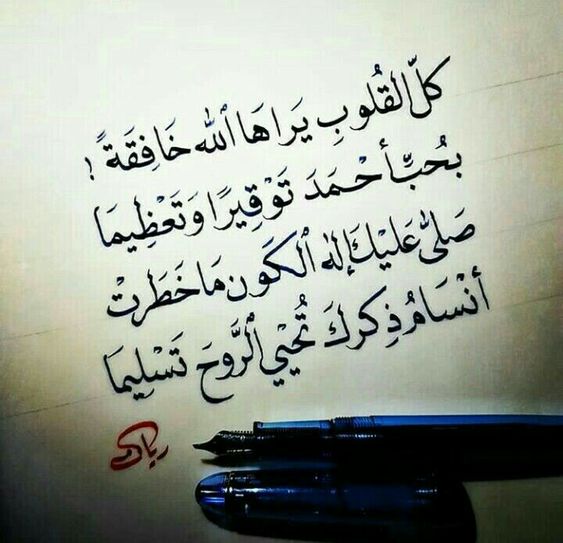 كلّ القُلوبِ يَراهَا ٱللّه خَافِقَةً !
بحُبِّ أحْمَدَ تَوْقِيرًا وَتَعْظِيمَا
صَلّى عَليْكَ إلٰهُ ٱلكَون مَا خَطَرتْ
أنْسَامُ ذِكركَ تُحْيِي ٱلرَّوحَ تَسْلِيمَا